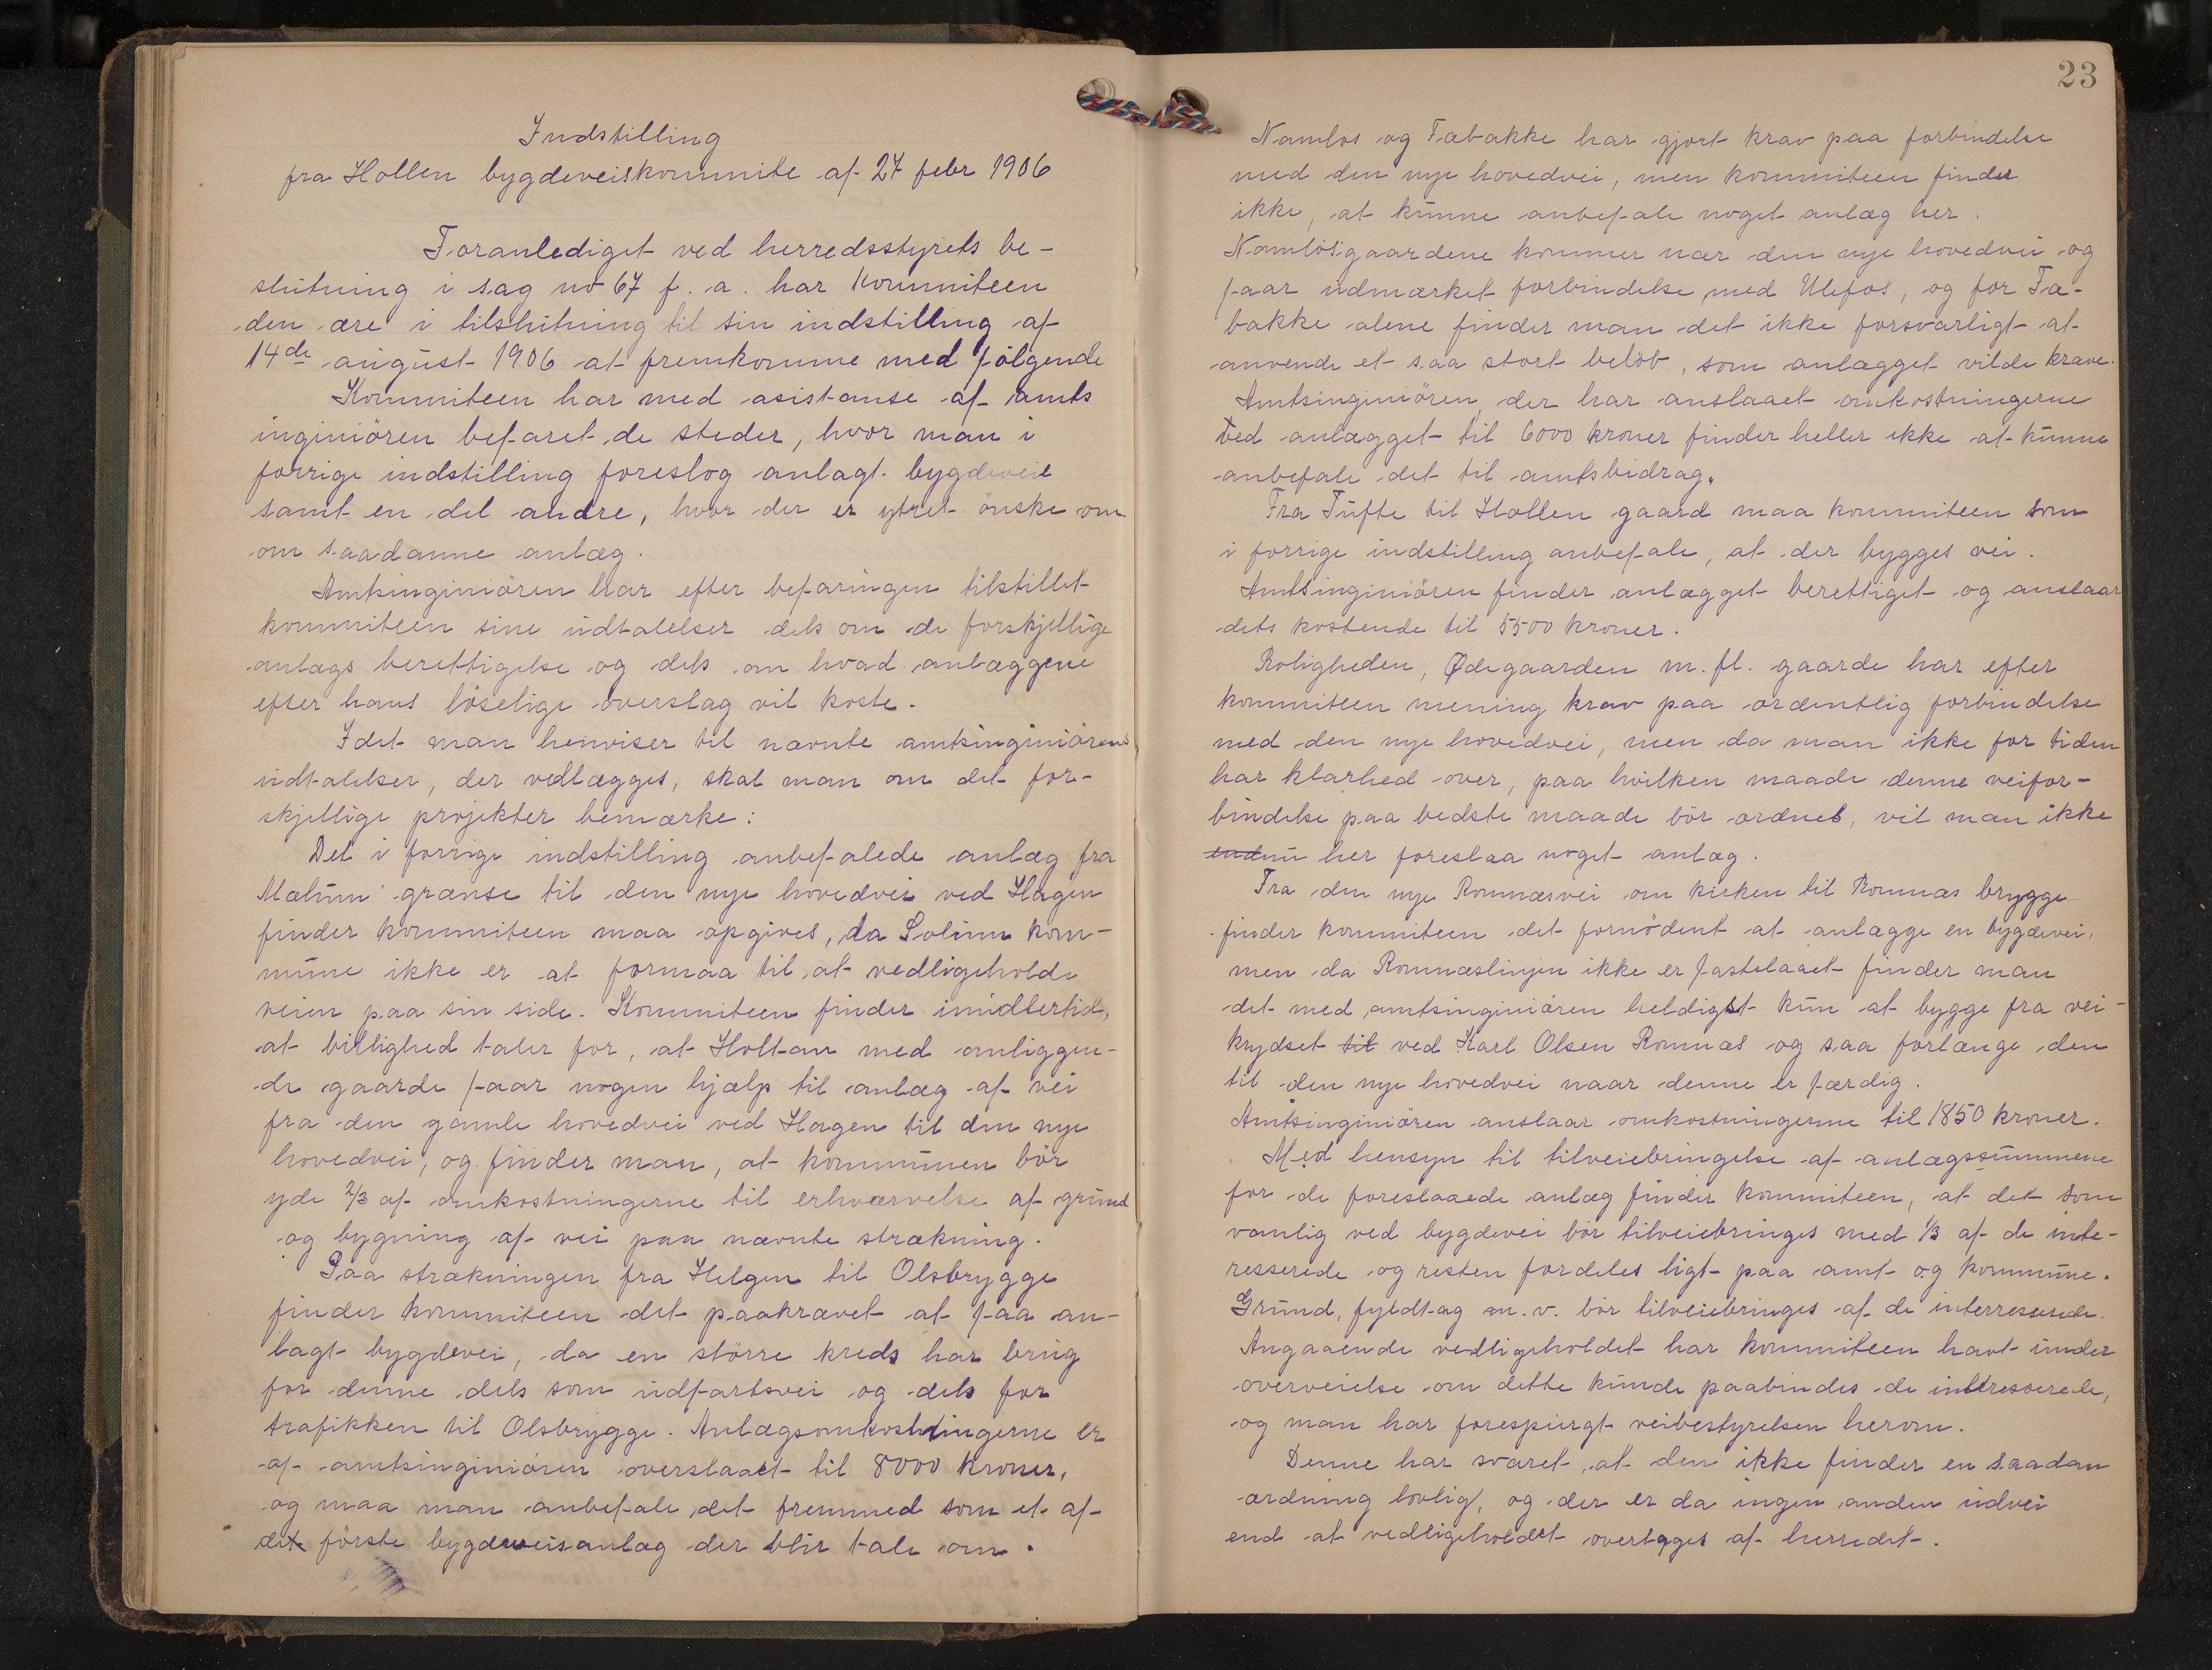 Indstilling
fra Hollen bygdeveiskommite af 27 febr 1906
Foranlediget ved herredsstyrets be-
slutning i sag no 67 f. a. har kommiteen
den ære i tilslutning til sin indstilling af
14de august 1906 at fremkomme med følgende
Kommiteen har med asistanse af amts
inginiören befaret de steder, hvor man i
forrige indstilling foreslog anlagt bygdeveie
samt en del andre, hvor der er ytret önske om
om saadanne anlæg.
Amtsinginiören har efter befaringen tilstillet
kommiteen sine udtalelser dels om de forskjellige
anlægs berettigelse og dels om hvad anlæggene
efter hans löselige overslag vil koste.
Idet man henviser til nævnte amtsinginiörens
udtalelser, der vedlægges, skal man om det for-
skjellige projekter bemærke:
Det i forrige indstilling anbefalede anlæg fra
Mælum grænse til den nye hovedvei ved Hagen
finder kommiteen maa opgives, da Solum kom-
mune ikke er at formaa til at vedligeholde
veien paa sin side. Kommiteen finder imidlertid,
at billighed taler for, at Holtan med omliggen-
de gaarde faar nogen hjælp til anlæg af vei
fra den gamle hovedvei ved Hagen til den nye
hovedvei, og finder man, at kommunen bör
yde 2/3 af omkostningerne til erhværvelse af grund
og bygning af vei paa nævnte strækning.
Paa strækningen fra Helgen til Olsbrygge
finder kommiteen det paakrævet at faa an-
lagt bygdevei, da en större kreds har brug
for denne dels som udfartsvei og dels for
trafikken til Olsbrygge. Anlægsomkostningerne er
af amtsinginiören overslaaet til 8000 kroner,
og maa man anbefale det fremmed som et af
det förste bygdeveisanlæg der blir tale om.
23
Namlös og Fæbakke har gjort krav paa forbindelse
med den nye hovedvei, men kommiteen finder
ikke, at kunne anbefale noget anlæg her.
Namlösgaardene kommer nær den nye hovedvei og
faar udmærket forbindelse med Ulefos, og for Fæ-
bakke alene finder man det ikke forsvarligt at
anvende et saa stort belöb, som anlægget vilde kræve.
Amtsinginiören, der har anslaaet omkostningerne
ved anlægget til 6000 kroner finder heller ikke at kunne
anbefale det til amtsbidrag.
Fra Tufte til Hollen gaard maa kommiteen som
i forrige indstilling anbefale, at der bygges vei.
Amtsinginiören finder anlægget berettiget og anslaar
dets kostende til 5500 kroner.
Roligheden, Ødegaarden m. fl. gaarde har efter
kommiteen mening krav paa ordentlig forbindelse
med den nye hovedvei, men da man ikke for tiden
har klarhed over, paa hvilken maade denne veifor-
bindelse paa bedste maade bör ordnes, vil man ikke
endnu her foreslaa noget anlæg.
Fra den nye Romnæsvei om kirken til Romnæs brygge
finder kommiteen det fornödent at anlægge en bygdevei,
men da Romnæslinjen ikke er fastslaaet finder man
det med amtsinginiören heldigst kun at bygge fra vei-
krydset til ved Karl Olsen Romnæs og saa forlænge den
til den nye hovedvei naar denne er færdig.
Amtsinginiören anslaar omkostningerne til 1850 kroner.
Med hensyn til tilveiebringelse af anlægssummene
for de foreslaaede anlæg finder kommiteen, at det som
vanlig ved bygdevei bör tilveiebringes med 1/3 af de inte-
resserede og resten fordeles ligt paa amt og kommune.
Grund, fyldtag m. v. bör tilveiebringes af de interreserede.
Angaaende vedligeholdet har kommiteen havt under
overveielse om dette kunde paabindes de interesserede,
og man har forespurgt veibestyrelsen herom.
Denne har svaret, at den ikke finder en saadan
ordning lovlig, og der er da ingen anden udvei
end at vedligeholdet overtages af herredet.